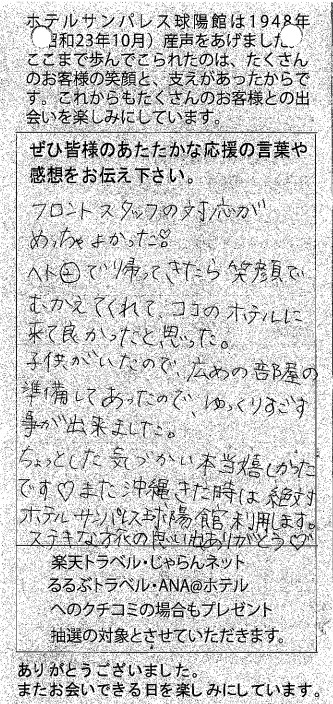 ホテルサンパレス球陽館は1948年
昭和23年10月）産声をあげました。
ここまで歩んでこられたのは、たくさん
のお客様の笑顔と、支えがあったからで
す。これからもたくさんのお客様との出
会いを楽しみにしています。
ぜひ皆様のあたたかな応援の言葉や
感想をお伝え下さい。
フロントスタッフの対応が
めっちゃよかった♡
ヘトヘトで帰ってきたら笑顔で
むかえてくれて、ココのホテルに
来て良かったと思った。
子供がいたので、広めの部屋の
準備してあったので、ゆっくりすごす
事が出来ました。
ちょっとした気づかい本当嬉しかった
です♡また沖縄きた時は絶対
ホテルサンパレス球陽館利用します。
ステキな旅の思い出ありがとう♡
楽天トラベル・じゃらんネット
るるぶトラベル・ANA@ホテル
へのクチコミの場合もプレゼント
抽選の対象とさせていただきます。
ありがとうございました。
またお会いできる日を楽しみにしています。